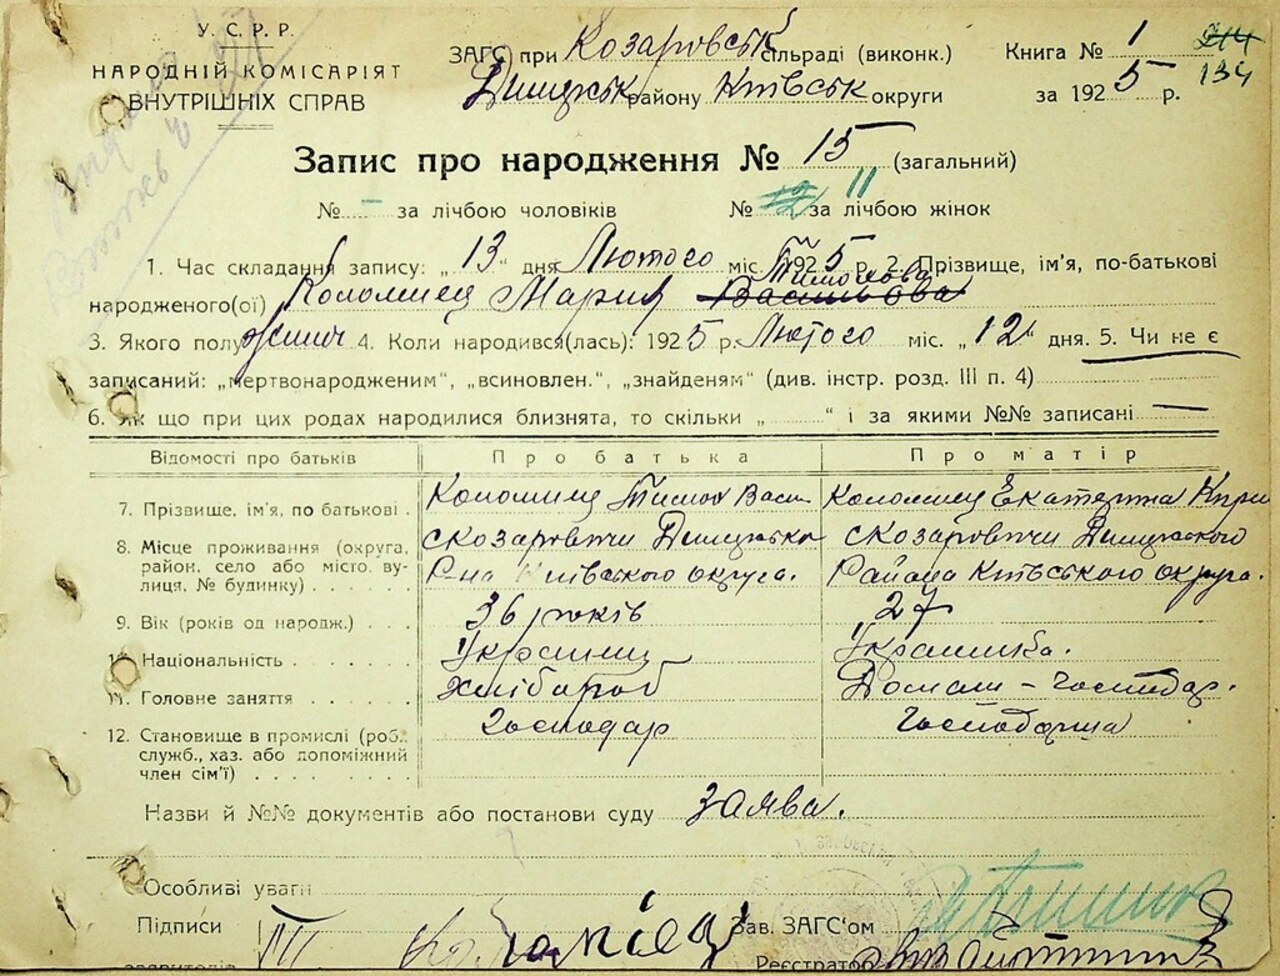 У. С. Р. Р.
НАРОДНІЙ КОМІСАРІЯТ
ВНУТРІШНІХ СПРАВ
ЗАГС при Козаровськ сільраді (виконк.)
Димерськ району Київськ округи
Книга № 1 214 134
за 1925 р.
Запис про народження № 15 (загальний)
№ - за лічбою чоловіків № 12 11 за лічбою жінок
1. Час складання запису: „ 13 “ дня Лютого міс. 1925 р. 2. Прізвище, ім'я, по-батькові
Тимохова
народженого(ої) Коломиец Мария Васильова
3. Якого полу жіноч 4. Коли народився(лась): 1925 р. Лютого міс. „ 12 “ дня. 5. Чи не є
записаний: „мертвонародженим“, „всиновлен.“, „знайденям“ (див. інстр. розд. III п. 4)
6. Як що при цих родах народилися близнята, то скільки „ “ і за якими №№ записані —
Відомості про батьків Про батька Про матір
7. Прізвище, ім'я, по батькові . Коломиец Тимох Васи Коломиец Екатерина Кири
8. Місце проживання (округа, район, село або місто, вулиця, № будинку) с Козаровичи Димерсько Р-на Київського округа. с Козаровичи Димерского Района Київського округа.
9. Вік (років од народж.) . . . 36 років 27
10. Національність . . . . . . Украинец Украинка.
11. Головне заняття . . . . . . Хлібороб Домаш - господар.
12. Становище в промислі (роб., служб., хаз. або допоміжний член сім'ї) . . . . . . . . Господар Господарша
Назви й №№ документів або постанови суду заява.
Особливі уваги
Підписи Коломієц Зав. ЗАГС'ом
заявителів Реєстратор